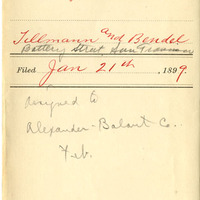 Tillmann and Bendel
Battery Street, San Francisco
Filed Jan 21th, 1899.
assigned to
Alexander-Balart Co.
Feb.